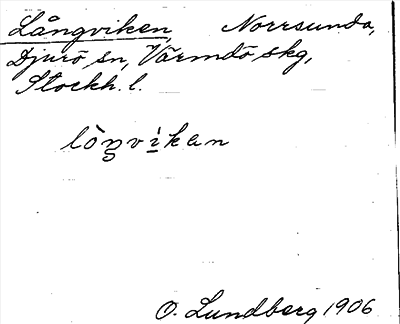 Långviken, Norrsunda,
Djurö sn, Värmdö skg,
Stockh. l.
lòŋvìkan
O. Lundberg 1906